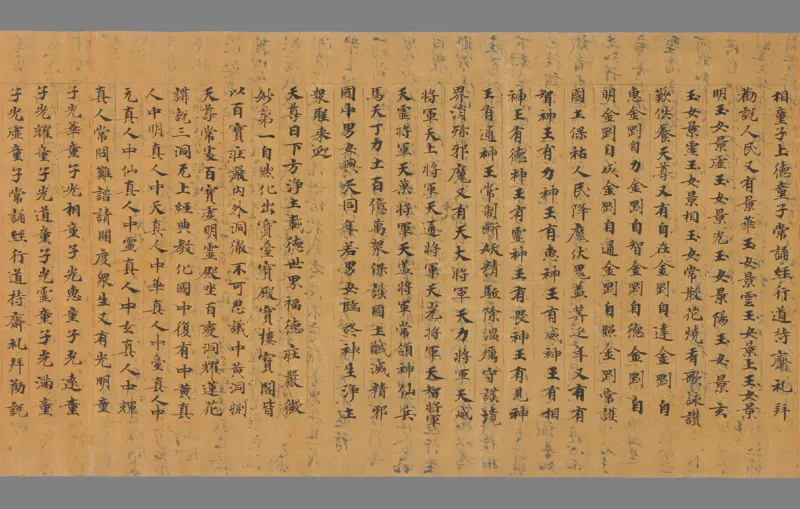 相童子上德童子常誦經行道持齋礼拜
勸說人民又有景華玉女景雲玉女景上玉女景
明玉女景虛玉女景光玉女景陽玉女景玄
玉女景靈玉女景相玉女常散花燒香歌詠讚
歎供養天尊又有自在金剛自達金剛自
惠金剛自力金剛自智金剛自德金剛自
明金剛自成金剛自通金剛自照金剛常護
國主保祐人民降魔伏鬼益筭延年又有有
智神王有力神王有惠神王有威神王有相
神王有德神王有靈神王有畏神王有見神
王有通神王常制斷妖精驅除溫厲守護境
界消殄邪魔又有天大將軍天力將軍天威
將軍天上將軍天通將軍天光將軍天智將軍
天靈將軍天猛將軍天蓋將軍常領神仙兵
馬天丁力士百億萬衆保護國土馘滅精邪
國中男女與天同年若男女臨終神生淨土
衆聖來迎
天尊曰下方淨土載德世界福德莊嚴微
妙第一自然化出寶臺寶殿寶樓寶閣皆
以百寶莊嚴內外洞徹不可思議中黃洞淵
天尊常處百寶虛明靈殿坐百變洞耀蓮花
講說三洞无上經典教化國中復有中黃真
人中明真人中天真人中華真人中臺真人中
元真人中仙真人中靈真人中玄真人中輝
真人常問難諮請開度衆生又有光明童
子光華童子光相童子光惠童子光遠童
子光耀童子光道童子光靈童子光滿童
子光虛童子常誦經行道持齋礼拜勸說